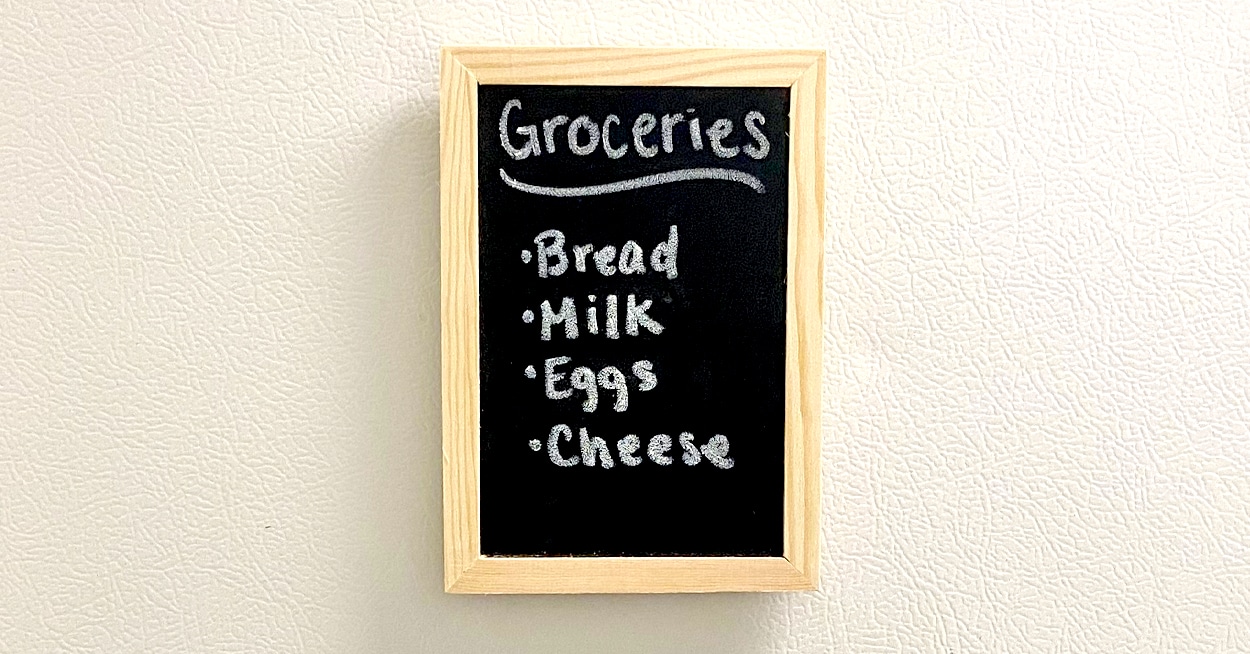 Groceries
·Bread
·Milk
·Eggs
·Cheese